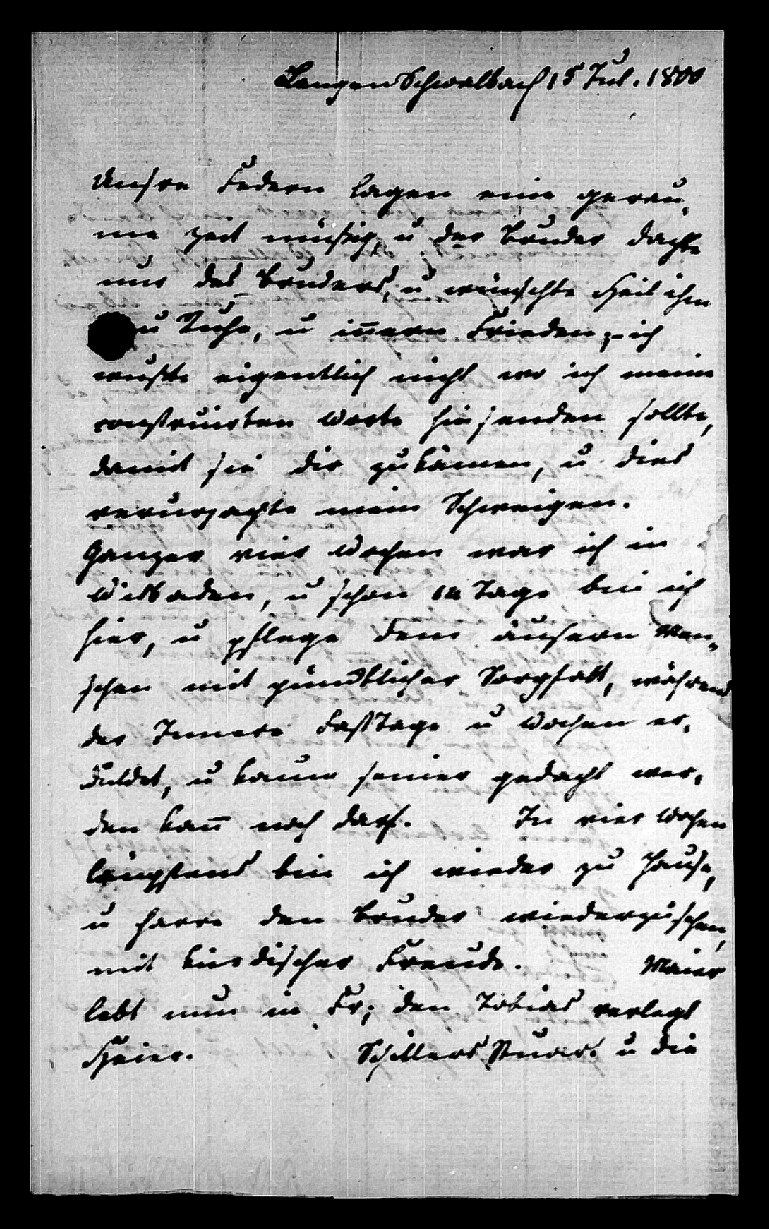 LangenSchwalbach 15 Jul. 1800
Unsre Federn lagen eine gerau,
me Zeit müssig, u der Bruder dachte
nur des Bruders, u wünschte Heil ihm
u Ruhe, u innern Frieden, – ich
wußte eigentlich nicht wo ich meine
construirten Worte hinsenden sollte,
damit sie dir zukämen, u dies
verursachte mein Schweigen.
Ganzer vier Wochen war ich in
Wisbaden, u schon 14 Tage bin ich
hier, u pflege dem äussern Men,,
schen mit pünktlicher Sorgfalt, während
der Innere FastTage u Wochen er,
duldet, u kaum seiner gedacht wer,
den kan̄ noch darf. In vier Wochen
längstens bin ich wieder zu Hause,
u harre den Bruder wiederzusehen,
mit kindischer Freude. Maier
lebt nun in Fr; den Tobias verlegt
Heier. Schillers Stuart u die